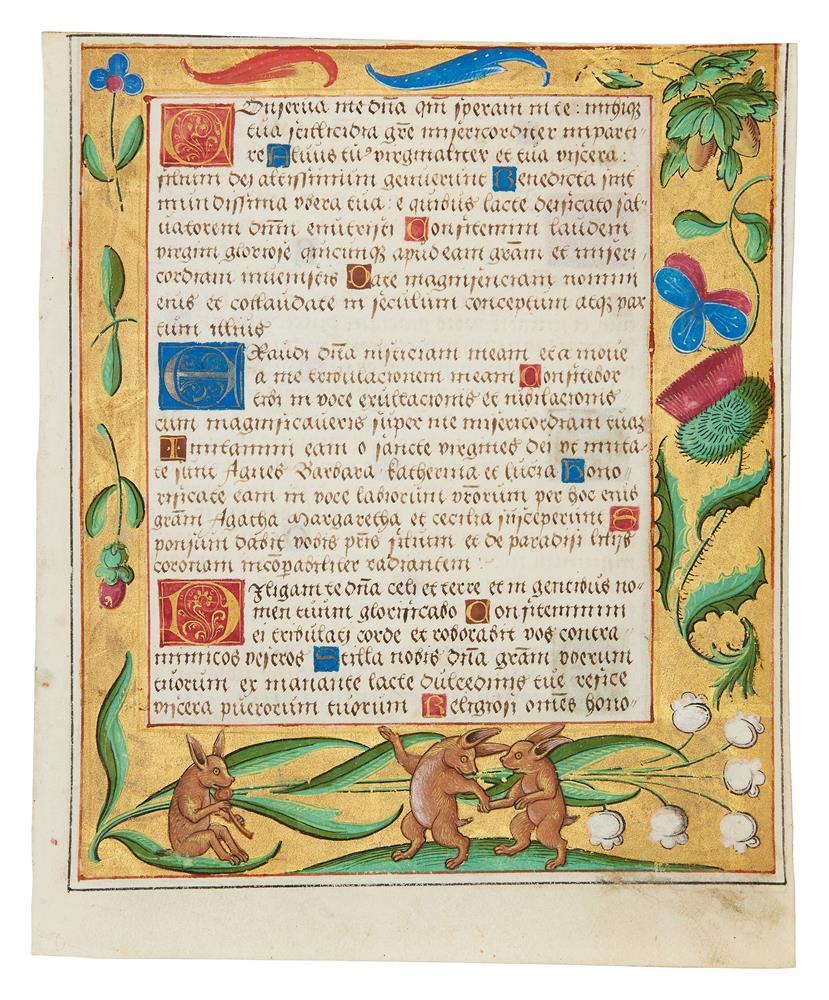 Conserua me dn̄a qm̄ speraui in te : michiq;
tua stillicidia gr̄e misericorditer imparti
re Aluus tuꝰ virginaliter et tua viscera :
filium dei altissimum genuerunt Benedicta sint
mundissima vbera tua : e quibus lacte deificato sal
uatorem dn̄m enutristi Confitemini laudem
virgini gloriose quicunq; apud eam gr̄am et miseri
cordiam inuenistis Date magnificenciam nomini
eius et collaudate in seculum conceptum atq; par
tum illius
Exaudi dn̄a iusticiam meam et a moue
a me tribulacionem meam Confitebor
tibi in voce exultacionis et iubilacionis
cum magnificaueris super me misericordiam tuā
Imitamini eam o sancte virgines dei vt imita
te sunt Agnes Barbara katherina et lucia hono
rificate eam in voce labiorum vr̄orum per hoc eius
gr̄am Agatha Margaretha et cecilia susceperunt S
ponsum dabit vobis pr̄is filium et de paradisi lilijs
coronam incōpabiliter radiantem
Diligam te dn̄a celi et terre et in gentibus no
men tuum glorificabo Confitemini
ei tribulati corde et roborabit vos contra
inimicos vestros Stilla nobis dn̄a gr̄am vberum
tuorum ex manante lacte dulcedinis tue refice
viscera puerorum tuorum Religiosi omēs hono